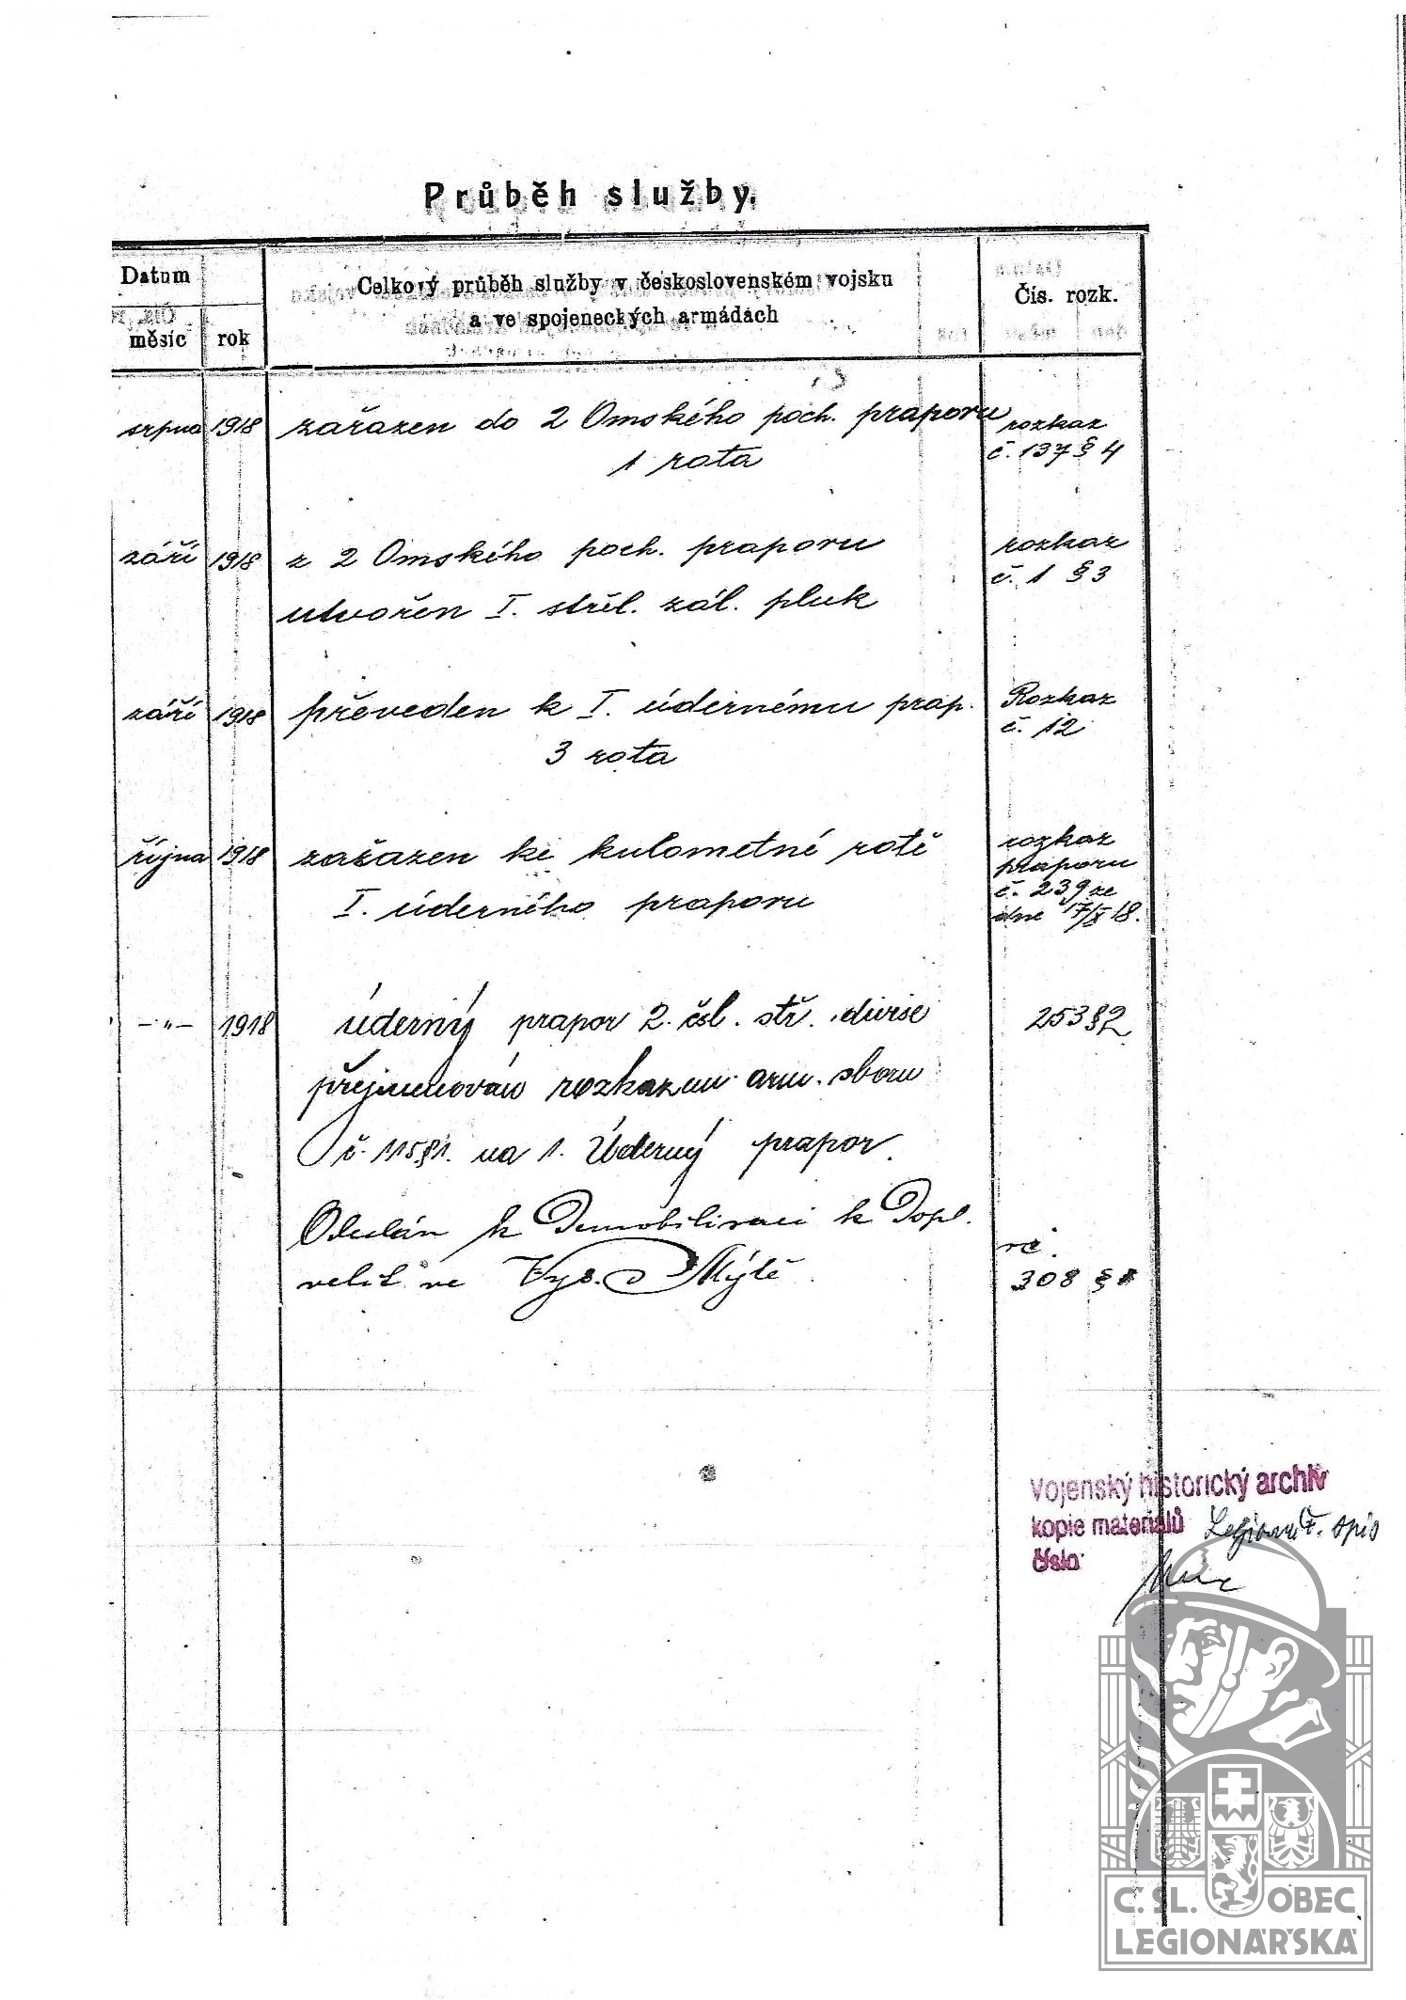 Průběh služby.
Datum
měsíc
rok
Celkový průběh služby v československém vojsku
a ve spojeneckých armádách
Čís. rozk.
srpna 1918 zařazen do 2 Omského poch. praporu rozkaz
1 rota č. 137 § 4
září 1918 z 2 Omského poch. praporu rozkaz
utvořen I. střel. zál. pluk č. 1 § 3
září 1918 převeden k I. údernému prap. Rozkaz
3 rota č. 12
října 1918 zařazen ke kulometné rotě rozkaz
I. úderného praporu praporu
č. 239 ze
dne 17/X 18.
-"- 1918 úderný prapor 2. čsl. stř. divise 253 § 2
přejmenován rozkazem arm. sboru
č. 115 § 1. na 1. Úderný prapor.
Odeslán k Demobilisaci k Dopl.
velit. ve Vys. Mýtě
308 §
Vojenský historický archiv
kopie materiálů Legionář. spis
číslo:
Č. SL. OBEC
LEGIONÁŘSKÁ